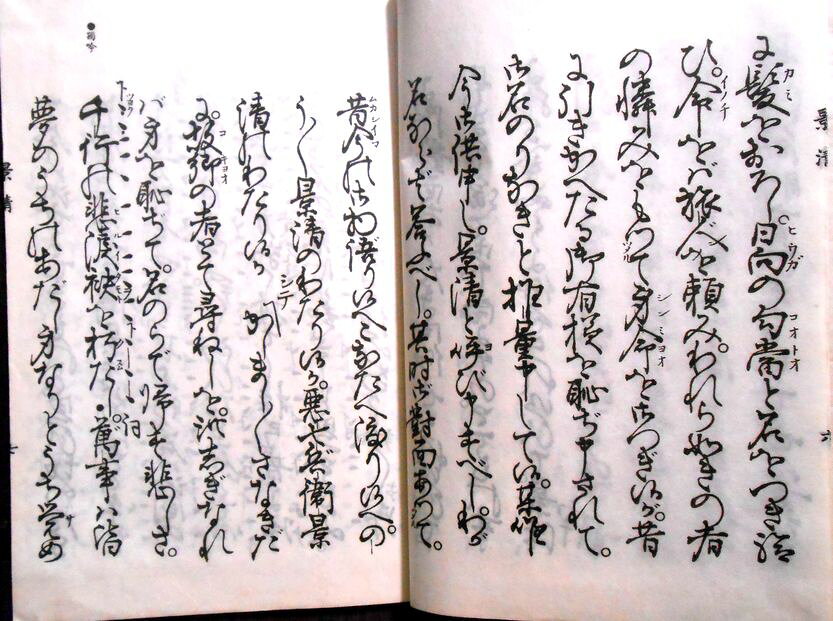 景清
に髪をおろし。日向の勾當と名をつき給
ひ。命をば旅人を頼み。われら如きの者
の憐みをもつて身命を御つぎ候が。昔
に引きかへたる御有様を恥ぢ申されて。
御名のりなきと推量申して候。某唯
今御供申し。景清と呼び申すべし。わが
名ならば答ふべし。其時御對面あつて。
昔今の御物語り候へ こなたへ渡り候へ の
う〳〵景清のわたり候か。悪七兵衛景
清のわたり候か シテ かしまし〳〵さなきだ
に。故郷の者とて尋ねしを。此志ぎなれ
ば身を恥ぢて。名のらで帰す悲しさ。
千行の悲涙袂を朽たし。萬事ハ皆
夢のうちのあだし身なりとうち覚め
●獨吟
景清